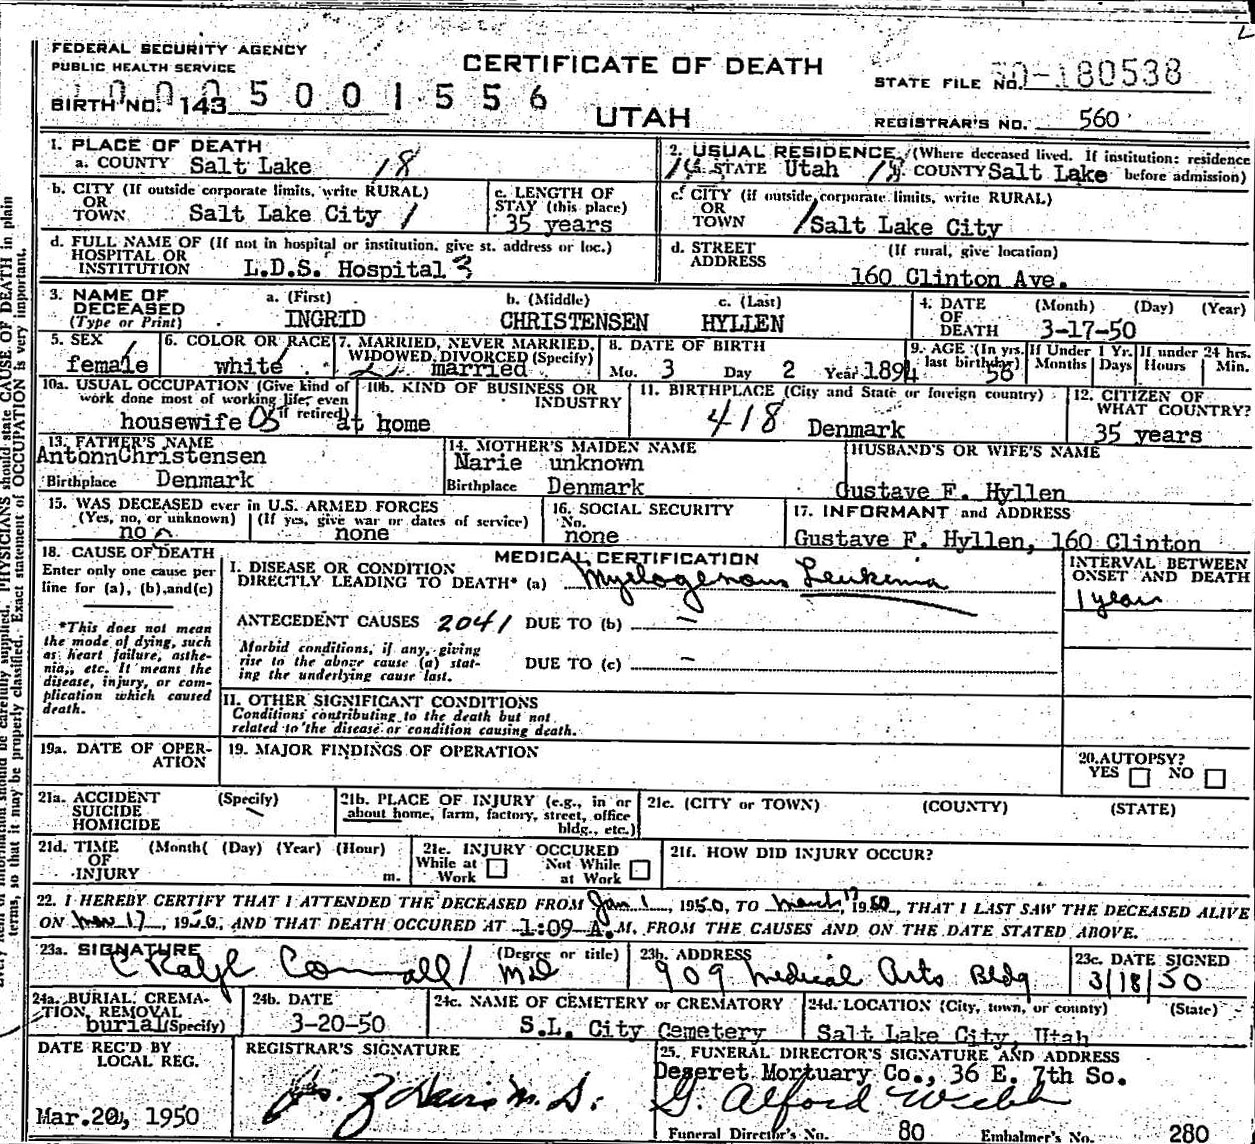 FEDERAL SECURITY AGENCY
PUBLIC HEALTH SERVICE
CERTIFICATE OF DEATH
STATE FILE NO. 50-180538
BIRTH NO. 143 0005001556
UTAH
REGISTRAR'S NO. 560
1. PLACE OF DEATH
a. COUNTY Salt Lake 18
2. USUAL RESIDENCE (Where deceased lived. If institution: residence
a. STATE Utah b. COUNTY Salt Lake before admission)
b. CITY (If outside corporate limits, write RURAL)
OR
TOWN Salt Lake City 1
c. LENGTH OF
STAY (this place)
35 years
c. CITY (if outside corporate limits, write RURAL)
OR
TOWN Salt Lake City
d. FULL NAME OF (If not in hospital or institution, give st. address or loc.)
HOSPITAL OR
INSTITUTION L.D.S. Hospital 3
d. STREET (If rural, give location)
ADDRESS
160 Clinton Ave.
3. NAME OF a. (First) b. (Middle) c. (Last)
DECEASED
(Type or Print) INGRID CHRISTENSEN HYLLEN
4. DATE (Month) (Day) (Year)
OF
DEATH 3-17-50
5. SEX
female
6. COLOR OR RACE
white
7. MARRIED, NEVER MARRIED,
WIDOWED, DIVORCED (Specify)
married
8. DATE OF BIRTH
Mo. 3 Day 2 Year 1894
9. AGE (In yrs.
last birthday) 56
If Under 1 Yr.
Months Days
If under 24 hrs.
Hours Min.
10a. USUAL OCCUPATION (Give kind of
work done most of working life, even
if retired)
housewife
10b. KIND OF BUSINESS OR
INDUSTRY
at home
11. BIRTHPLACE (City and State or foreign country)
418 Denmark
12. CITIZEN OF
WHAT COUNTRY?
35 years
13. FATHER'S NAME
AntonnChristensen
Birthplace Denmark
14. MOTHER'S MAIDEN NAME
Narie unknown
Birthplace Denmark
HUSBAND'S OR WIFE'S NAME
Gustave F. Hyllen
15. WAS DECEASED ever in U.S. ARMED FORCES
(Yes, no, or unknown) (If yes, give war or dates of service)
no none
16. SOCIAL SECURITY
No.
none
17. INFORMANT and ADDRESS
Gustave F. Hyllen, 160 Clinton
18. CAUSE OF DEATH
Enter only one cause per
line for (a), (b), and (c)
*This does not mean
the mode of dying, such
as heart failure, asthe-
nia, etc. It means the
disease, injury, or com-
plication which caused
death.
MEDICAL CERTIFICATION
I. DISEASE OR CONDITION
DIRECTLY LEADING TO DEATH* (a) Myelogenous Leukemia
INTERVAL BETWEEN
ONSET AND DEATH
1 year
ANTECEDENT CAUSES 2041 DUE TO (b) —
Morbid conditions, if any, giving
rise to the above cause (a) stat-
ing the underlying cause last.
DUE TO (c) —
II. OTHER SIGNIFICANT CONDITIONS
Conditions contributing to the death but not
related to the disease or condition causing death.
19a. DATE OF OPER-
ATION
19. MAJOR FINDINGS OF OPERATION
20. AUTOPSY?
YES NO
21a. ACCIDENT (Specify)
SUICIDE
HOMICIDE
21b. PLACE OF INJURY (e.g., in or
about home, farm, factory, street, office
bldg., etc.)
21c. (CITY or TOWN) (COUNTY) (STATE)
21d. TIME (Month( (Day) (Year) (Hour)
OF
INJURY m.
21e. INJURY OCCURED
While at Work Not While at Work
21f. HOW DID INJURY OCCUR?
22. I HEREBY CERTIFY THAT I ATTENDED THE DECEASED FROM Jan 1, 1950, TO March 17, 1950, THAT I LAST SAW THE DECEASED ALIVE
ON Mar 17, 1950, AND THAT DEATH OCCURED AT 1:09 A.M. FROM THE CAUSES AND ON THE DATE STATED ABOVE.
23a. SIGNATURE (Degree or title)
MD
23b. ADDRESS
909 Medical Arts Bldg
23c. DATE SIGNED
3/18/50
24a. BURIAL, CREMA-
TION, REMOVAL
burial (Specify)
24b. DATE
3-20-50
24c. NAME OF CEMETERY or CREMATORY
S.L. City Cemetery
24d. LOCATION (City, town, or county) (State)
Salt Lake City, Utah
DATE REC'D BY
LOCAL REG.
Mar. 20, 1950
REGISTRAR'S SIGNATURE
25. FUNERAL DIRECTOR'S SIGNATURE AND ADDRESS
Deseret Mortuary Co., 36 E. 7th So.
G. Alford Webb
Funeral Director's No. 80 Embalmer's No. 280